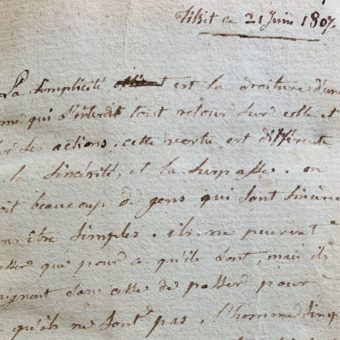 Tilsit ce 21 Juin 1807.
La Simplicité est la droiture d'une
me qui S'interdit tout retour Sur elle et
Ses actions. cette vertu est différente
la Sincérité, et la Surpasse. on
oit beaucoup de gens qui Sont Sincères
ns être Simples. ils ne peuvent
passer que pour ce qu'ils Sont, mais ils
aignent sans cesse de passer pour
qu'ils ne Sont pas. l'homme Simp